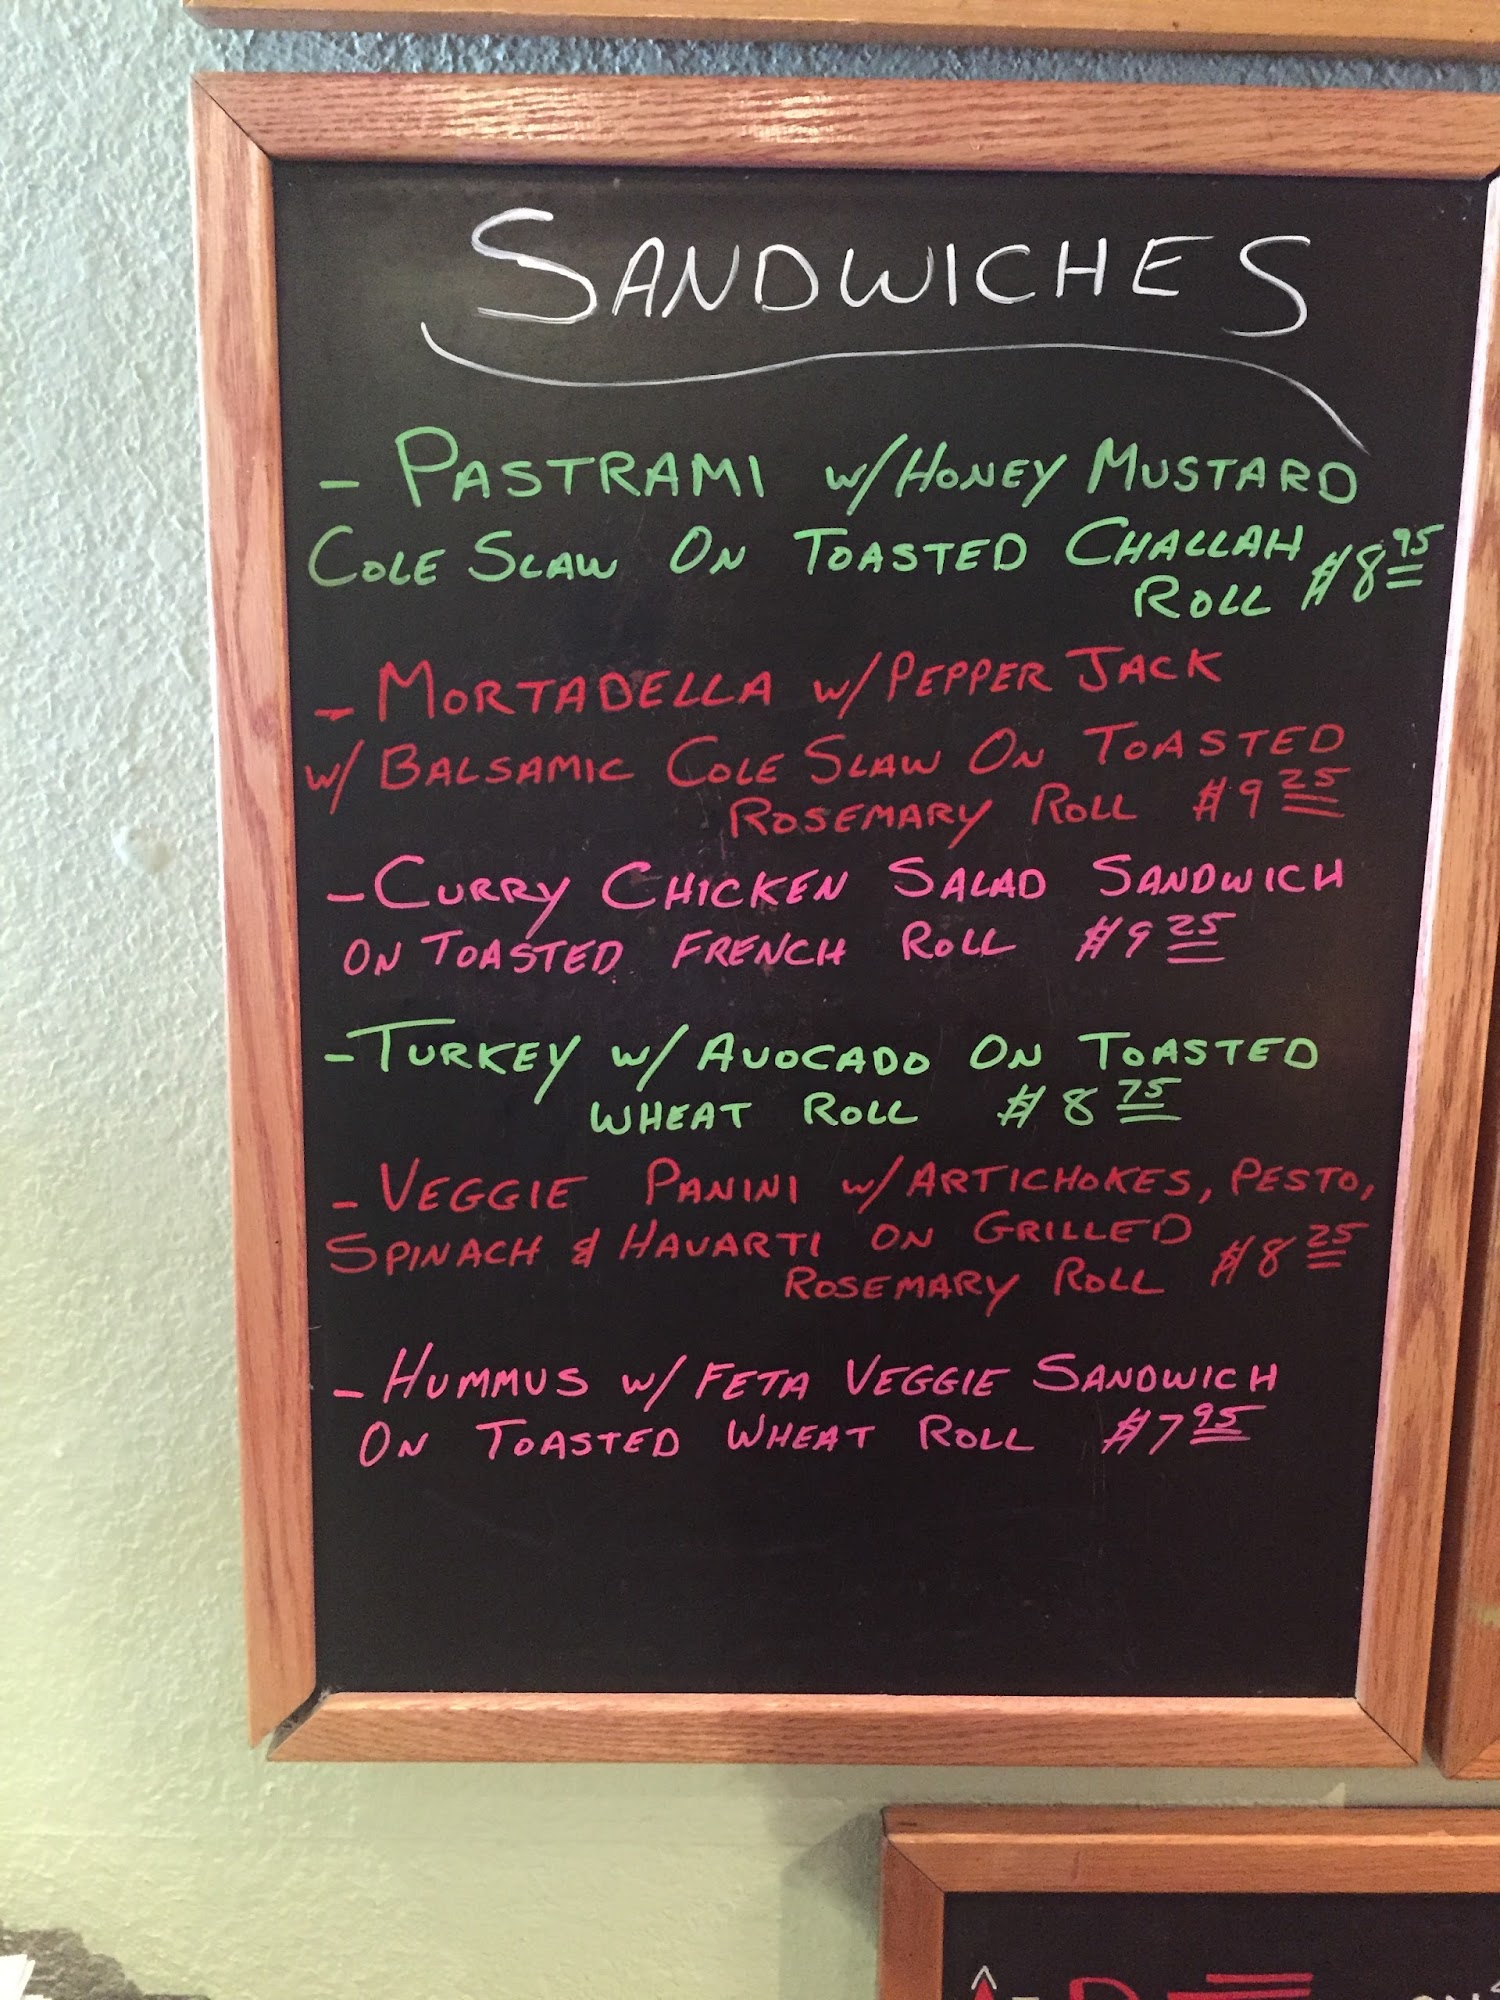 SANDWICHES
- PASTRAMI W/HONEY MUSTARD
COLE SLAW ON TOASTED CHALLAH
ROLL $8.95
- MORTADELLA W/PEPPER JACK
W/ BALSAMIC COLE SLAW ON TOASTED
ROSEMARY ROLL $9 25
- CURRY CHICKEN SALAD SANDWICH
ON TOASTED FRENCH ROLL $9 25
- TURKEY W/ AVOCADO ON TOASTED
WHEAT ROLL $8 75
- VEGGIE PANINI W/ARTICHOKES, PESTO,
SPINACH & HAVARTI ON GRILLED
ROSEMARY ROLL $8 25
- HUMMUS W/FETA VEGGIE SANDWICH
ON TOASTED WHEAT ROLL $7 95